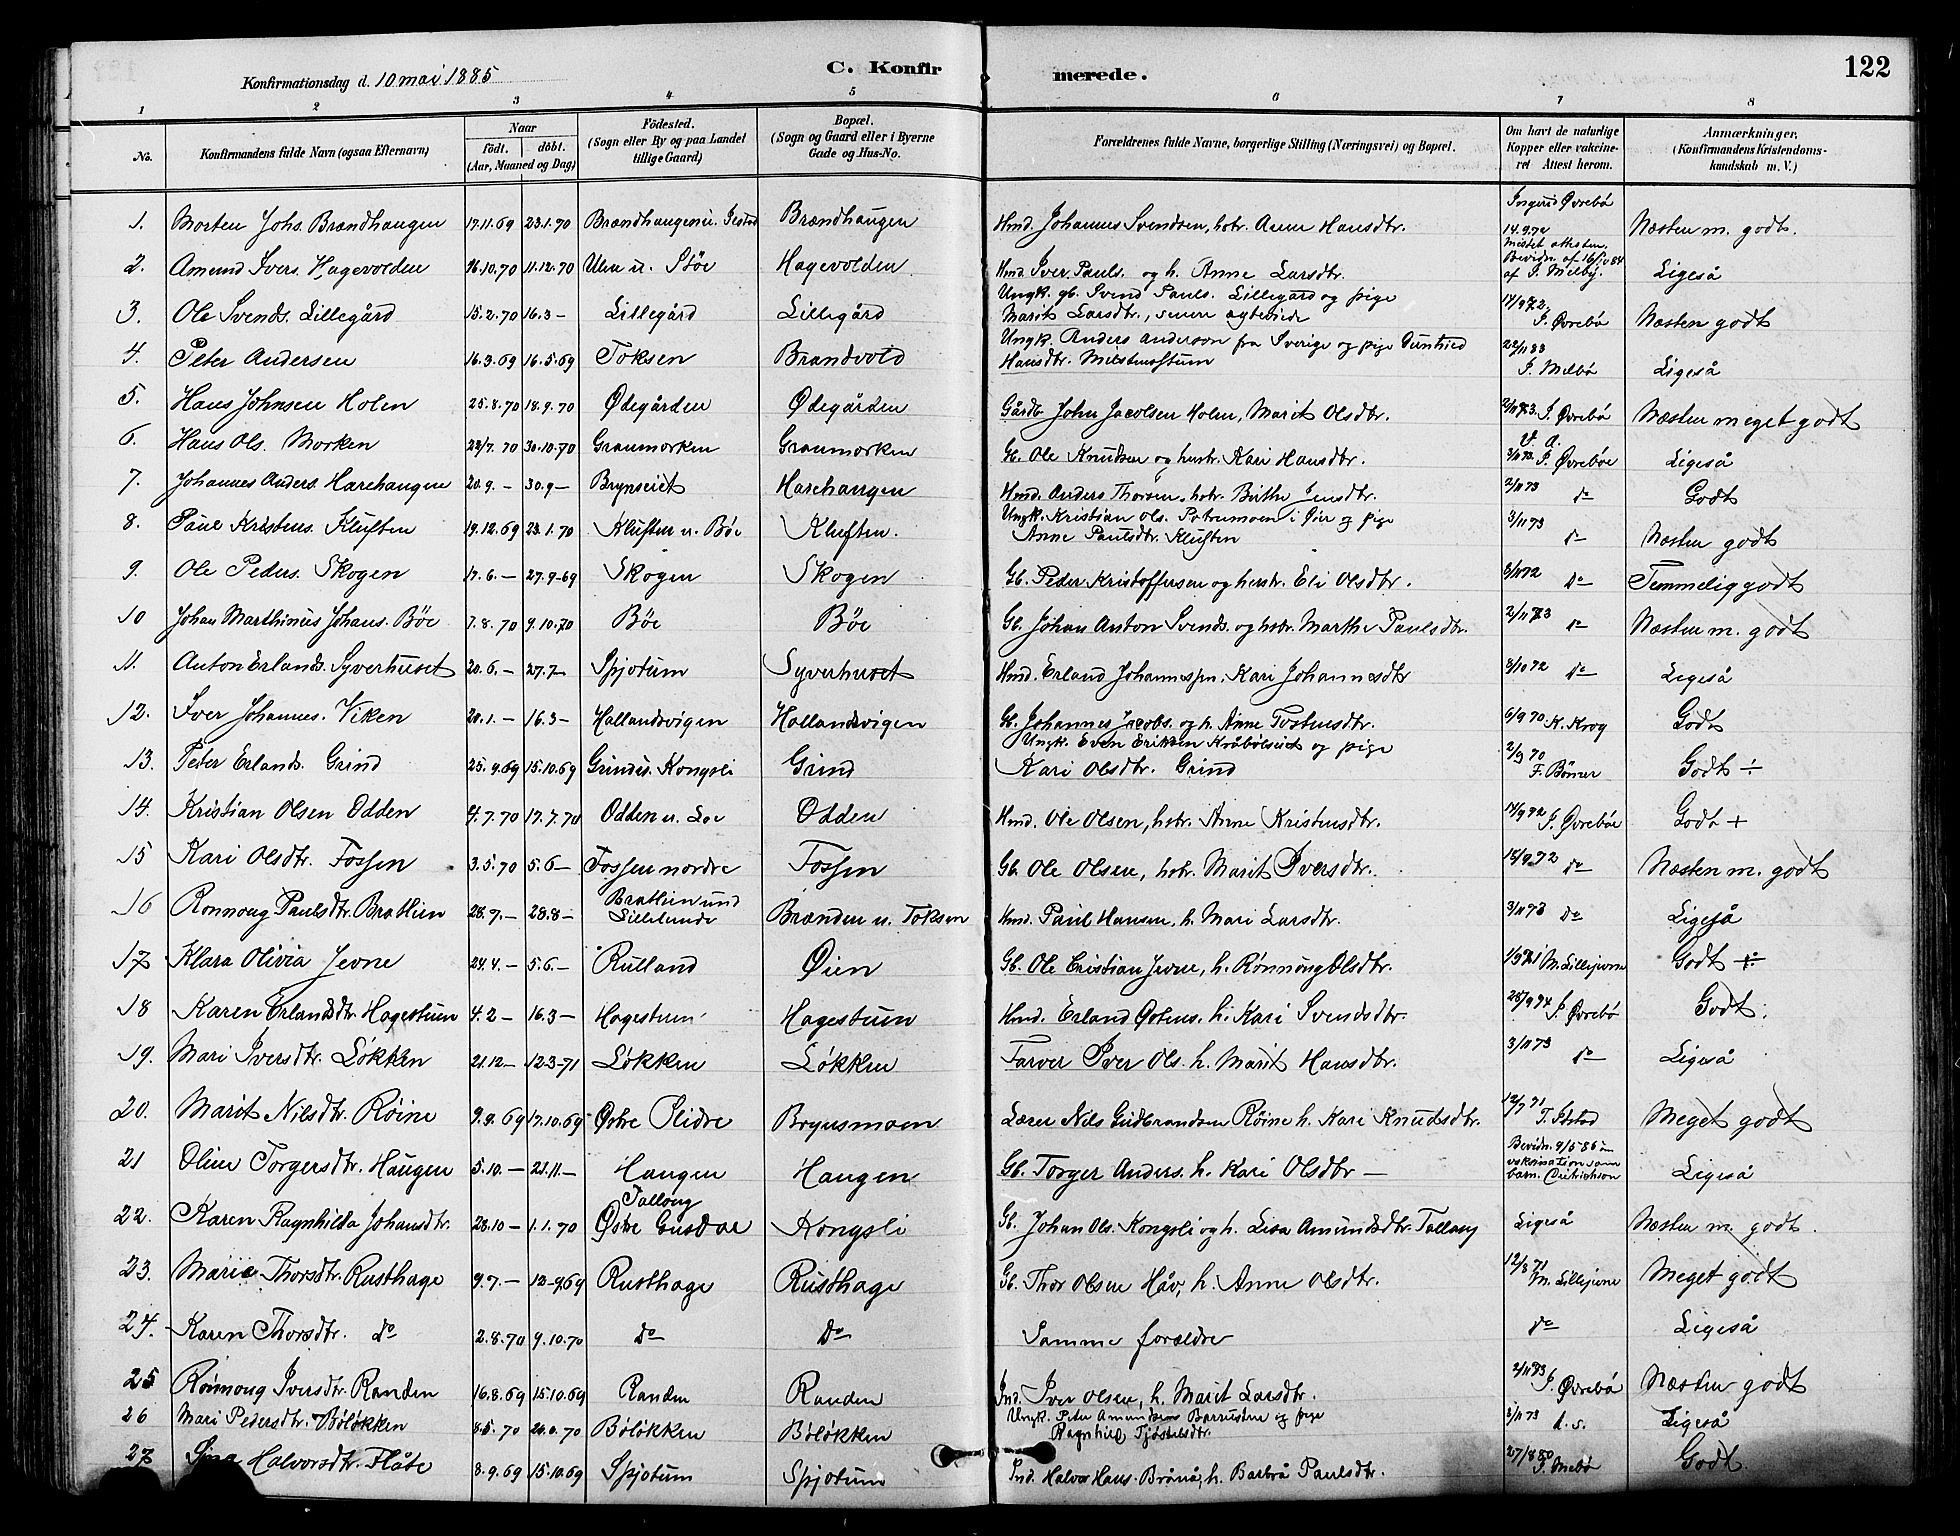 Konfirmationsdag d. 10 mai 1885 C. Konfirmerede. 122
1 2 3 4 5 6 7 8
No. Konfirmandens fulde Navn (ogsaa Efternavn) Naar født. døbt. (Aar, Maaned og Dag) Fødested. (Sogn eller By og paa Landet tillige Gaard) Bopæl. (Sogn og Gaard eller i Byerne Gade og Hus-No. Forældrenes fulde Navne, borgerlige Stilling (Næringsvei) og Bopæl. Om havt de naturlige Kopper eller vakcineret Attest herom. Anmærkninger, (Konfirmandens Kristendomskundskab m. V.)
1. Morten Johs. Brændhaugen 17.11.69 23.1.70 Brændhaugen u. Brændhaugen Hmd. Johannes Svendsen, hstr. Anne Hansdtr. Ingerid Øvrebø 14.9.72 Næsten m. godt.
2. Amund Ivers. Hagevolden 26.10.70 11.12.70 Ulen u. Støe Hagevolden Hmd. Iver Pauls. og h. Anne Larsdtr. Mistet attesten. Bevidn. af af J. Melby. Ligeså
3. Ole Svends. Lillegård 15.2.70 16.3- Lillegård Lillegård Ungk. gb. Svend Pauls. Lillegård og pige Marit Larsdtr., senere ægteviede 14/9 72, J. Øvrebø Næsten godt
4. Peter Andersen 16.3.69 16.5.69 Toksen Brandvold Ungk. Anders Anderson fra Sverige og pige Hansdtr. 22/11 83 J. Melbø Ligeså
5. Hans Johnsen Holen 25.8.70 18.9.70 Ødegården Ødegården Gårdb. John Jacobsen Holen, Marit Olsdtr. 2/11 73. J. Øvrebø Næsten meget godt
6. Hans Ols. Morken 22/7. 70 30.10.70 Granmorken Granmorken Gb. Ole Knudsen og hustr. Kari Hansdtr. 3/11 73. J. Øvrebøe Ligeså
7. Johannes Anders. Harehaugen 20.9.- 30.9- Brynseiet Harehaugen Hmd. Anders Thorsen, hstr. Birthe Jensdtr. 2/11 73 do Godt
8. Paul Kristens. Kluften 19.12.69 23.1.70 Kluften u. Bøe Kluften. Ungk. Kristian Ols. i Øier og pige Anne Paulsdtr. Kluften 3/11 73 do Næsten godt
9. Ole Peders. Skogen 17.6.- 27.9-69 Skogen Skogen Gb. Peder Kristoffersen og hustr. Eli Olsdtr. 3/11 72 do Temmelig godt
10 Johan Marthinus Johans. Bøe 7.8.70 9.10.70 Bøe Bøe Gb. Johan Anton Svends. og hstr. Marthe Paulsdtr. 2/11 73 do Næsten m. godt
11. Anton Erlands. Syverhuset 20.6.- 27.7- Spjotum Syverhuset Hmd. Erland Johannessen, Kari Johannesdtr 8/10 72 do Ligeså
12. Iver Johannes. Viken 20.1.- 16.3- Hallandsvigen Hallandsvigen Gb. Johannes Jacobs. og h. Anne Tostensdtr. 6/9 70 K. Krog Godt
13. Peter Erlands. Grind 25.9.69 15.10.69 Grind u. Kongsli Grind Ungk. Even Eriksen Kråbølseiet og pige Kari Olsdtr. Grind 2/9 70 F. Bømer Godt ÷
14. Kristian Olsen Odden 4.7.70 17.7.70 Odden u. Loe Odden Hmd. Ole Olsen, hstr. Anne Kristensdtr. 14/9 72 J. Øvrebøe Godt +
15 Kari Olsdtr. Fossen 3.5.70 5.6- Fossen nordre Fossen Gb. Ole Olsen, hstr. Marit Iversdtr. 18/9.72 do Næsten m. godt
16 Rønnoug Paulsdtr Bratlien 28.7.- 28.8- Bratlien und Lillelunde Brænden u. Toksen Hmd. Paul Hansen, h. Mari Larsdtr. 3/11 73 do Ligeså
17 Klara Olivia Jevne 24.4.- 5.6- Rulland Øien Gb. Ole Cristian Jevne, h. Rønnoug Olsdtr. M. Lillejevne Godt
18 Karen Erlandsdtr. Hagestuen 4.2- 16.3- Hagestuen Hagestuen Hmd. Erland h. Kari Svendsdtr. 28/9 74 J. Øvrebø Godt.
19. Mari Iversdtr. Løkken 21.12- 12.3-71 Løkken Løkken Farver Iver Ols. h. Marit Hansdtr. 3/11 73 do Ligeså
20. Marit Nilsdtr. Røine 9.9.69 17.10.69 Østre Slidre Brynsmoen Lærer Nils Gudbrandsen Røine h. Kari Knudsdtr. 12/7 71 Meget godt
21 Oline Torgersdtr. Haugen 5.10.- 21.11- Haugen Haugen Gb. Torger Anders. h. Kari Olsdtr - Bevidn. 9/5 86 vakcination som barn. Ligeså
22. Karen Ragnhilda Johansdtr. 28.10- 1.1.70 Talloug Østre Gusdal Kongsli Gb. Johan Ols. Kongsli og h. Lisa Amundsdtr. Talloug Ligeså Næsten m. godt.
23. Marie Thorsdtr. Rusthage 9.7.- 12-9.69 Rusthage Rusthage Gb. Thor Olsen Håv, h. Anne Olsdtr. 12/8 71 M. Lillejevne Meget godt
24. Karen Thorsdtr. do 2.8.70 9.10.70 do do Samme forældre do Ligeså
25 Rønnoug Iversdtr. Randen 16.8.69 15.10.69 Randen Randen Ind. Iver Olsen, h. Marit Larsdtr. 2/11 83 J. Øvrebø Næsten godt
26 Mari Pedersdtr. Bøløkken 8.5.70 70 Bøløkken Bøløkken Ungk. Peter Amundsen og pige Ragnhild 3/11 73 d. s. Ligeså
27 Halvorsdtr. Flåte 8.9.69 15.10.69 Spjotum Spjotum Ind. Halvor Hans. Brånå, h. Barbrå Paulsdtr. 27/8 80 Godt.